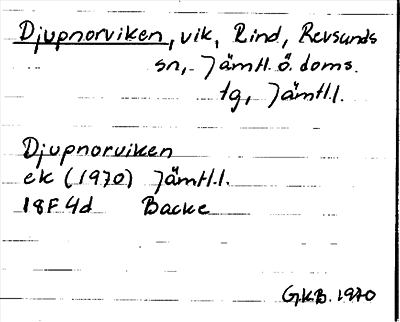 Djupnorviken, vik, Rind, Revsunds
sn, Jämtl. ö. doms.
tg, Jämtl.l.
Djupnorviken
ek (1970) Jämtl.l.
18F4d Backe
G.K.B. 1970